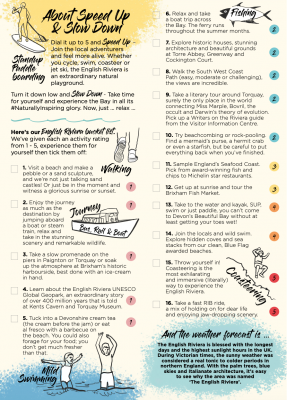 About Speed Up
& Slow Down
Dial it up to 5 and Speed Up -
Join the local adventurers
and feel more alive. Whether
you cycle, swim, coasteer or
jet ski, the English Riviera is
an extraordinary natural
playground.
Standup
Paddle
boarding
Turn it down low and Slow Down - Take
time for yourself and experience the Bay in all its
#NaturallyInspiring glory. Now, just ... relax ...
Here's our English Riviera bucket list.
We've given each an activity rating
from 1 - 5, experience them for
yourself then tick them off:
Walking
1. Visit a beach and make a
pebble or a sand sculpture,
and we're not just talking sand
castles! Or just be in the moment and
witness a glorious sunrise or sunset.
1
2. Enjoy the journey
as much as the
destination by
jumping aboard
a boat or steam
train, relax and
take in the stunning
scenery and remarkable wildlife.
Journey
Sea, Rail & Boat
1
3. Take a slow promenade on the
piers in Paignton or Torquay or soak
up the atmosphere at Brixham's historic
harbourside, best done with an ice-cream
in hand.
1
4. Learn about the English Riviera UNESCO
Global Geopark, an extraordinary story
of over 400 million years that is told
at Kents Cavern and Torquay Museum.
1
5. Tuck into a Devonshire cream tea
(the cream before the jam) or eat
al fresco with a barbecue on
the beach. You could also
forage for your food; you
don't get much fresher
than that.
1
Wild
Swimming
6. Relax and take
a boat trip across
the Bay. The ferry runs
throughout the summer months.
Fishing
2
7. Explore historic houses, stunning
architecture and beautiful grounds
at Torre Abbey, Greenway and
Cockington Court.
2
8. Walk the South West Coast
Path (easy, moderate or challenging),
the views are incredible.
2
9. Take a literary tour around Torquay,
surely the only place in the world
connecting Miss Marple, Poirot, the
occult and Darwin's theory of evolution.
Pick up a Writers on the Riviera guide
from the Visitor Information Centre.
2
10. Try beachcombing or rock-pooling.
Find a mermaid's purse, a hermit crab
or even a starfish, but be careful to put
everything back when you're finished.
2
11. Sample England's Seafood Coast.
Pick from award-winning fish and
chips to Michelin star restaurants.
12. Get up at sunrise and tour the
Brixham Fish Market.
3
13. Take to the water and kayak, SUP,
swim or just paddle, you can't come
to Devon's Beautiful Bay without at
least getting your toes wet!
4
14. Join the locals and wild swim.
Explore hidden coves and sea
stacks from our clean, Blue Flag
awarded beaches.
4
15. Throw yourself in!
Coasteering is the
most exhilarating
and immersive (literally)
way to experience the
English Riviera.
Coasteering
5
16. Take a fast RIB ride,
a mix of holding on for dear life
and enjoying jaw-dropping scenery.
5
And the weather forecast is ...
The English Riviera is blessed with the longest
days and the highest sunlight hours in the UK.
During Victorian times, the sunny weather was
considered a real tonic to colder periods in
northern England. With the palm trees, blue
skies and Italianate architecture, it's easy
to see why the area was named
'The English Riviera'.